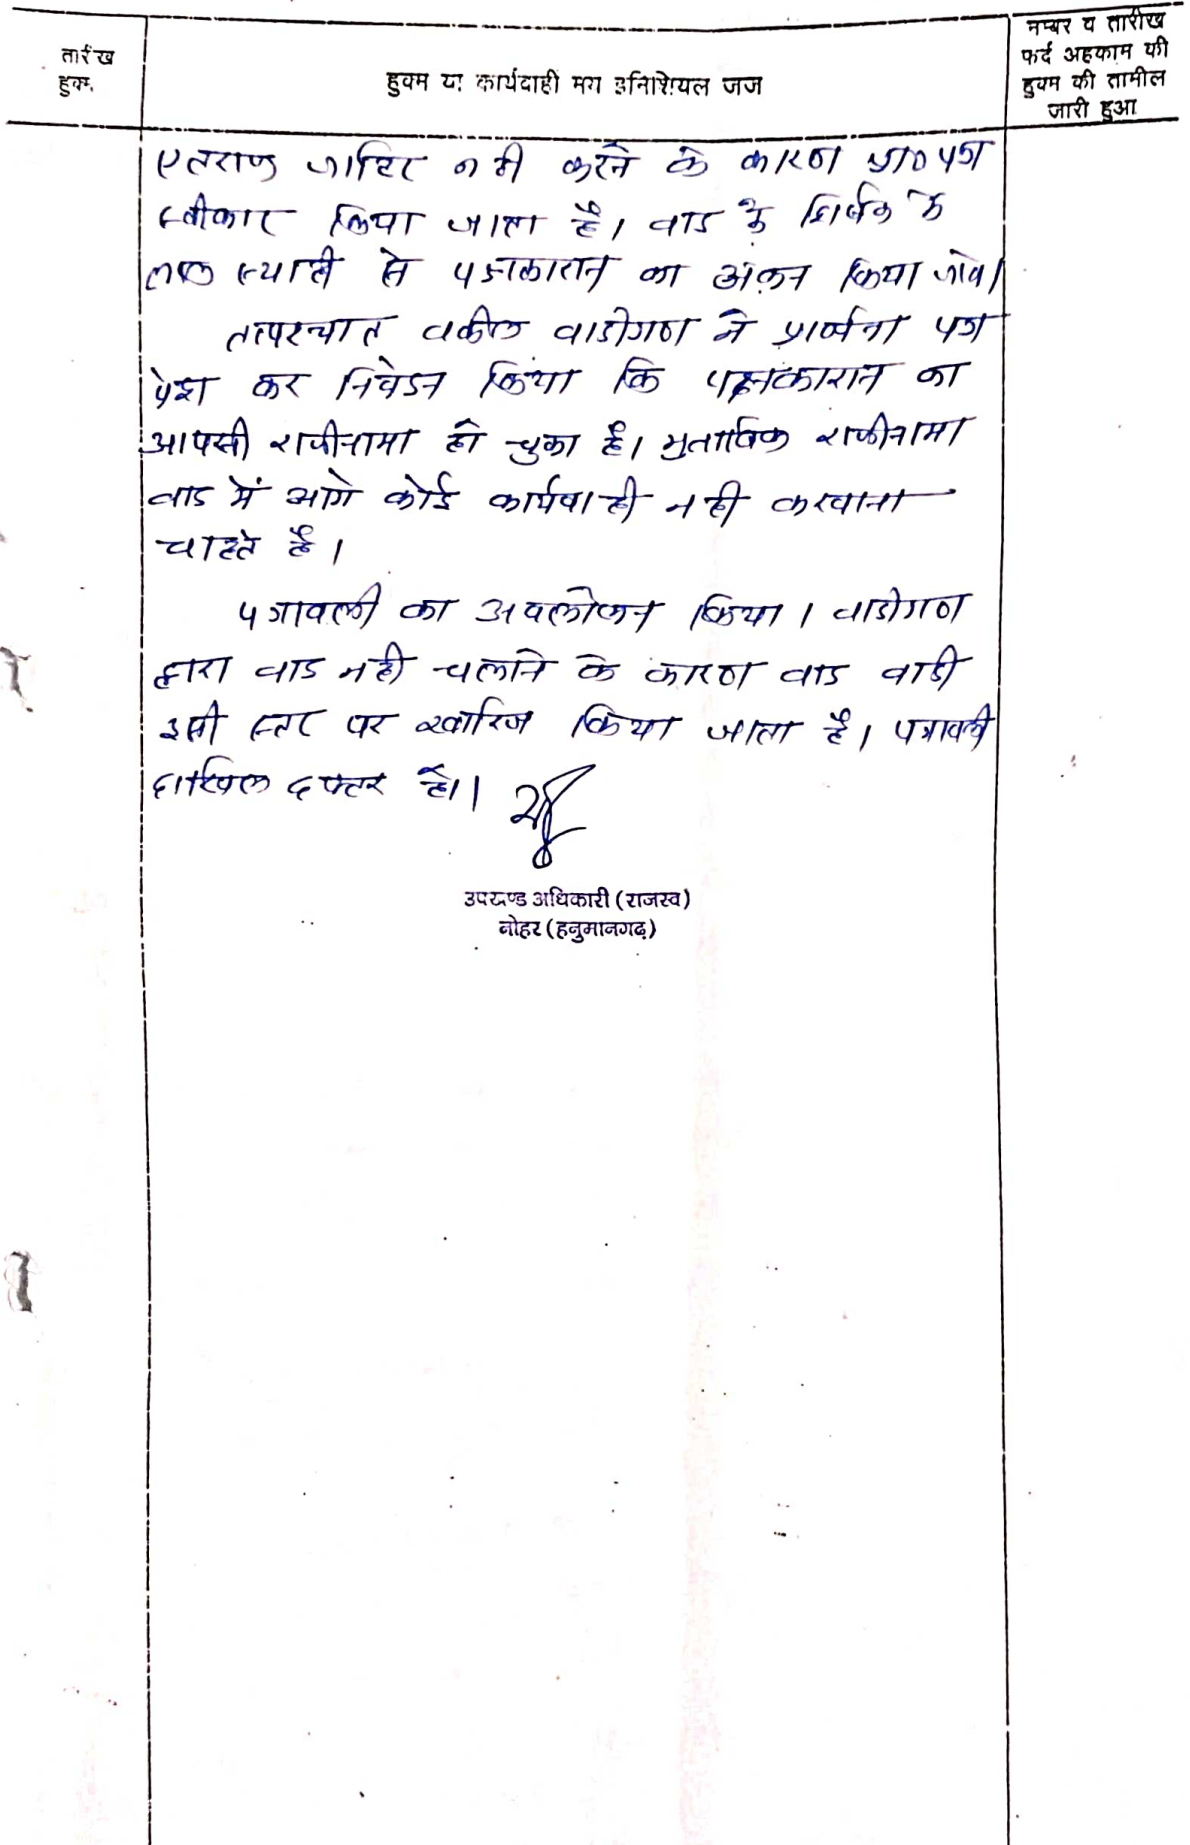 तारीख
हुक्म
हुक्म या कार्यवाही मय इनिशियल जज
नम्बर व तारीख
फर्द अहकाम की
हुक्म की तामील
जारी हुआ
एतराज जाहिर नही करने के कारण प्रा० पत्र
स्वीकार किया जाता है। वाद के शिर्षक मे
लाल स्याही से पक्षकारान का अंकन किया जावे।
तत्पश्चात वकील वादीगण ने प्रार्थना पत्र
पेश कर निवेदन किया कि पक्षकारान का
आपसी राजीनामा हो चुका है। मुताबिक राजीनामा
वाद में आगे कोई कार्यवाही नही करवाना
चाहते है।
पत्रावली का अवलोकन किया। वादीगण
द्वारा वाद नही चलाने के कारण वाद वादी
इसी स्तर पर खारिज किया जाता है। पत्रावली
दाखिल दफ्तर हो।
उपखण्ड अधिकारी (राजस्व)
नोहर (हनुमानगढ़)